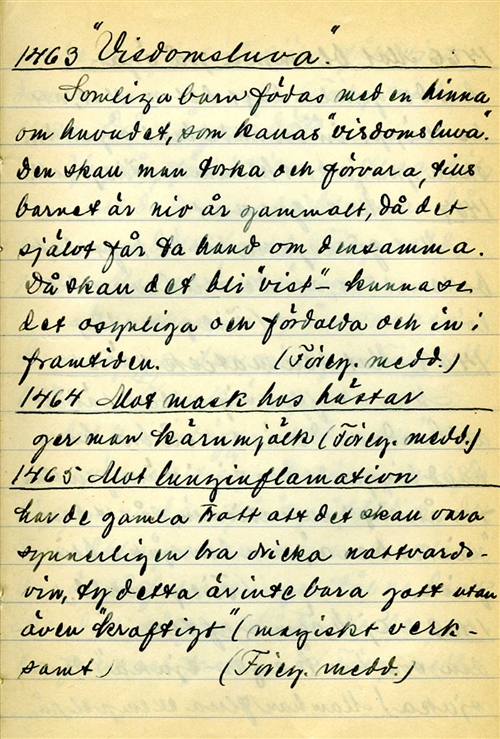 1463 "Visdomsluva".
Somliga barn födas med en hinna
om huvudet, som kallas "visdomsluva".
Den skall man torka och förvara, tills
barnet är nio år gammalt, då det
självt får ta hand om densamma.
Då skall det bli "vist" – kunna se
det osynliga och fördolda och in i
framtiden. (Föreg. medd.)
1464 Mot mask hos hästar
ger man kärnmjölk (Föreg. medd.)
1465 Mot lunginflamation
har de gamla trott att det skall vara
synnerligen bra dricka nattvards-
vin, ty detta är inte bara gott utan
även "kraftigt" (magiskt verk-
samt) (Föreg. medd.)